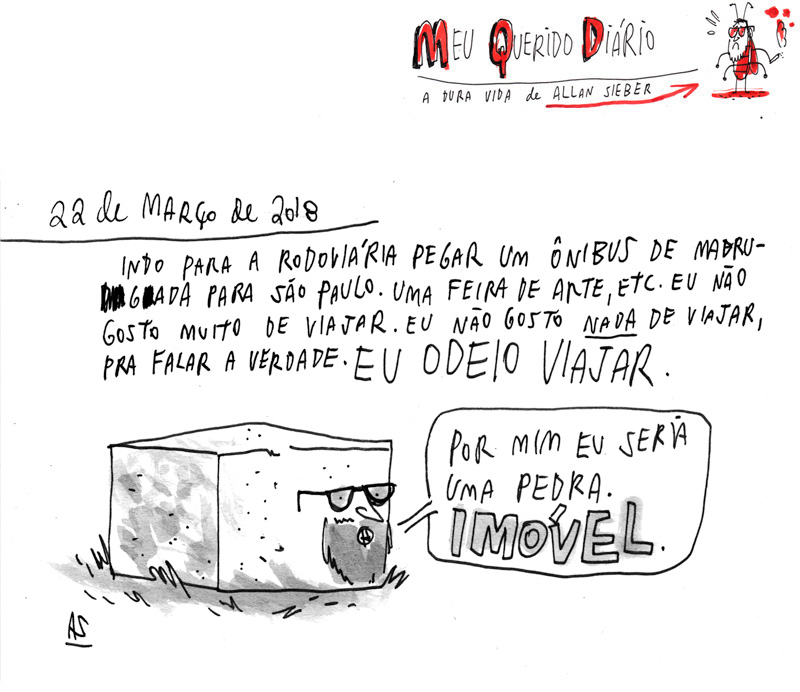 MEU QUERIDO DIÁRIO
A DURA VIDA de ALLAN SIEBER
22 de MARÇO de 2018
INDO PARA A RODOVIÁRIA PEGAR UM ÔNIBUS DE MADRU-
GADA PARA SÃO PAULO. UMA FEIRA DE ARTE, ETC. EU NÃO
GOSTO MUITO DE VIAJAR. EU NÃO GOSTO NADA DE VIAJAR,
PRA FALAR A VERDADE. EU ODEIO VIAJAR.
POR MIM EU SERIA
UMA PEDRA.
IMÓVEL.
AS